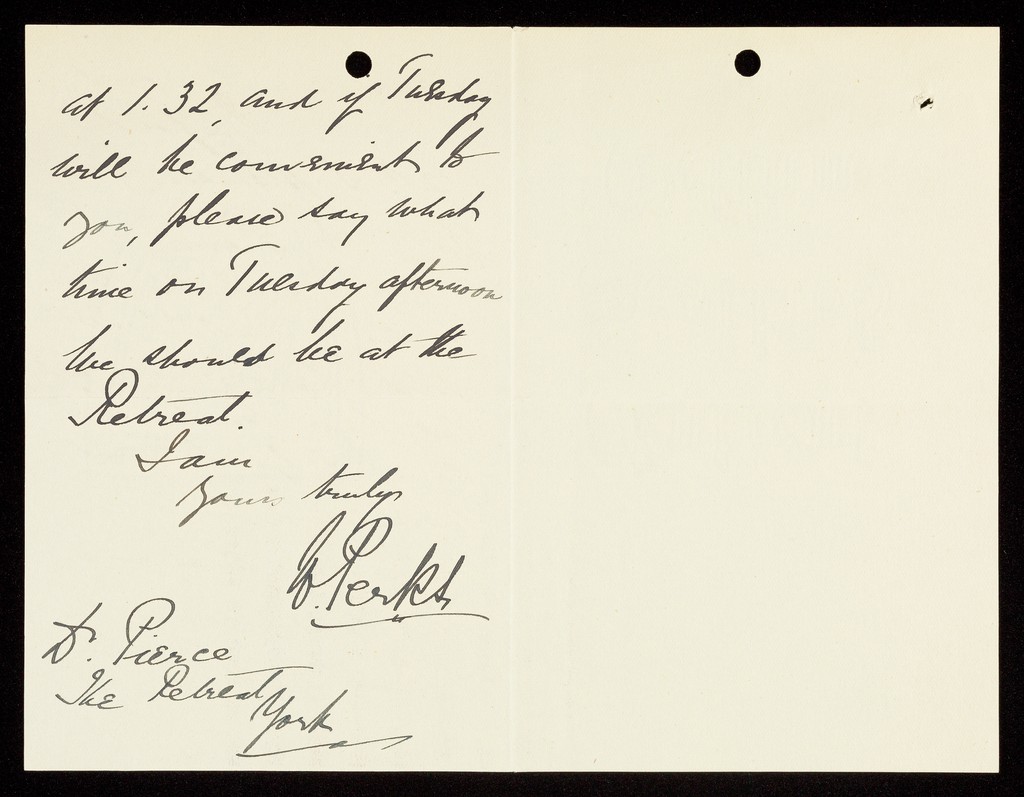 at 1.32, and if Tuesday
will be convenient to
you, please say what
time on Tuesday afternoon
we should be at the
Retreat.
I am
Yours truly
W. Perks
Dr. Pierce
The Retreat
York